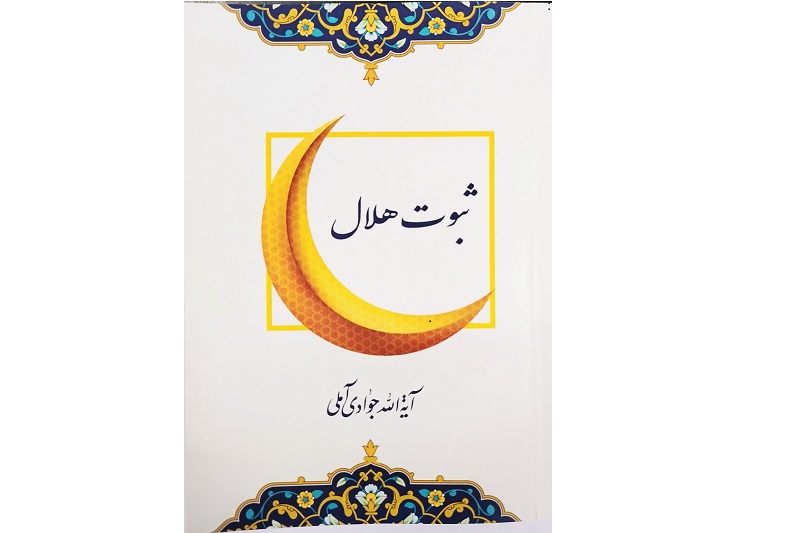 ثبوت هلال
آیة الله جوادی آملی